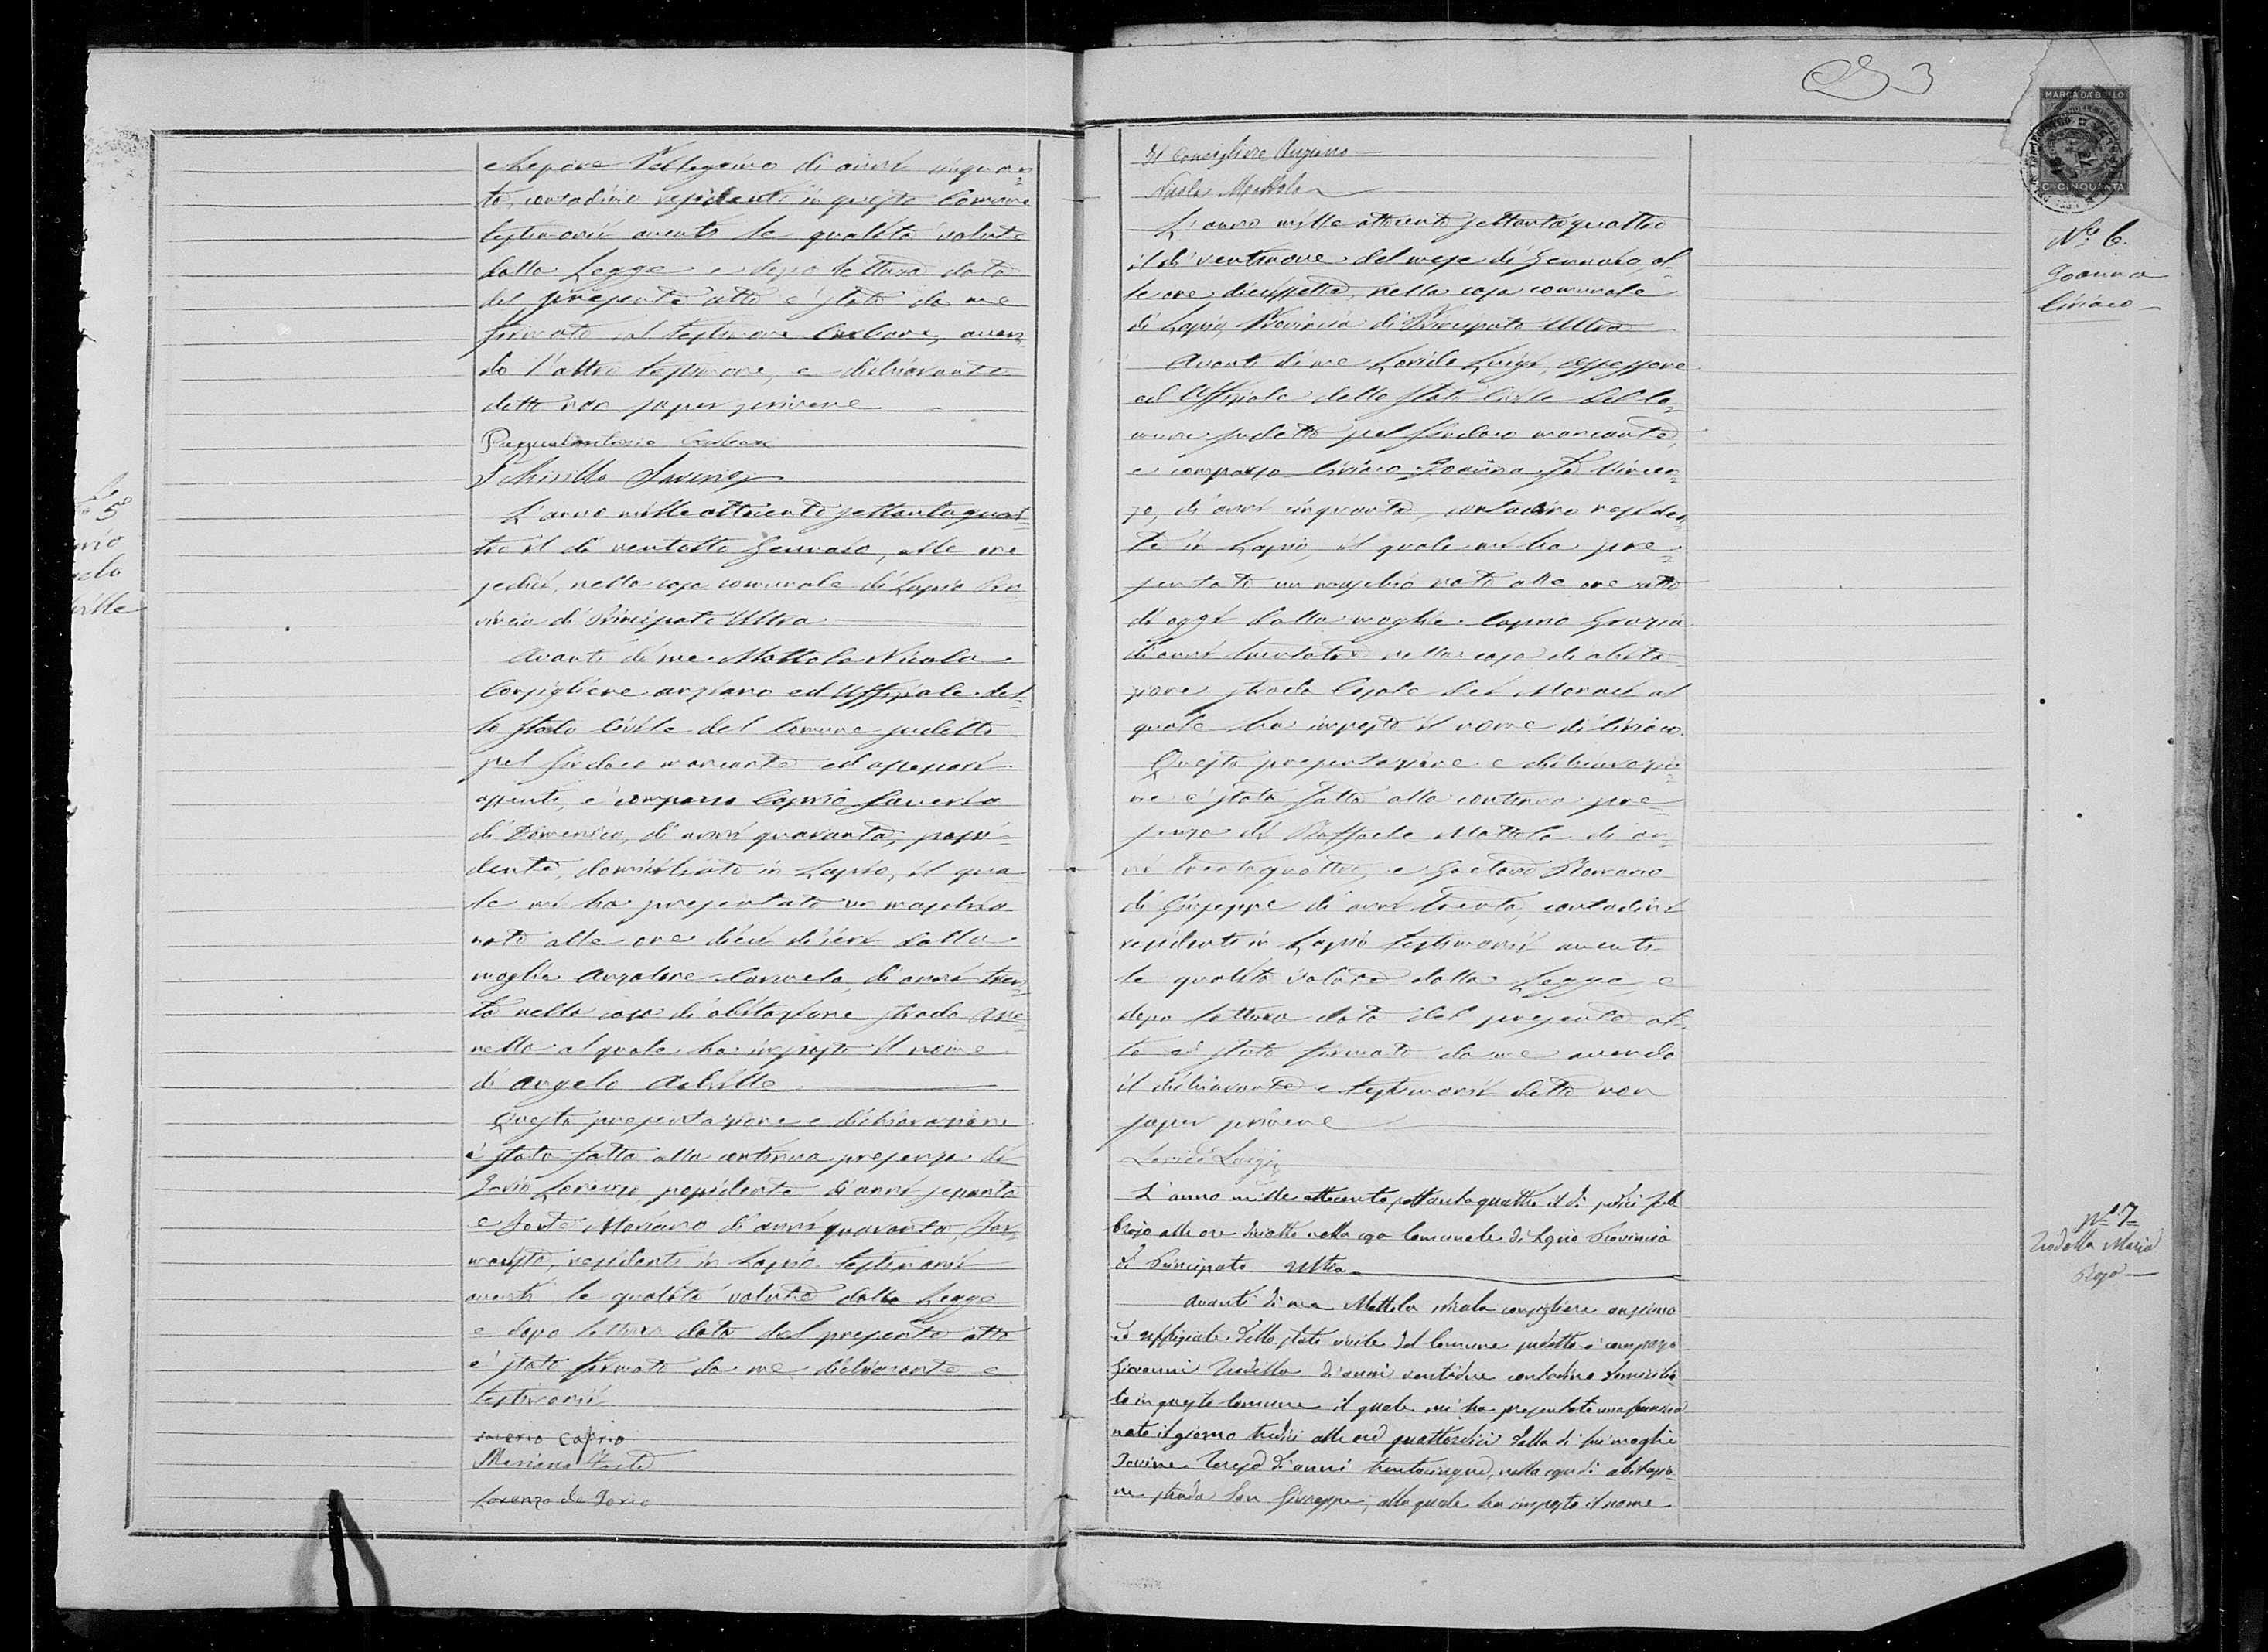 e Lepore Pellegrino di anni cinquan=
ta, contadino residenti in questo Comune
testimonii aventi le qualità volute
dalla Legge e dopo lettura data
del presente atto è stato da me
firmato col testimone Carbone, aven=
do l'altro testimone, e dichiarante
detto non saper scrivere
Pasqualantonio Carbone
L'anno mille ottocento settantaquat=
tro il dì ventotto Gennaio, alle ore
sedici, nella casa comunale di Lapio Pro=
vincia di Principato Ultra
Avanti di me Mottola Nicola
Consigliere anziano ed Uffiziale del=
lo Stato Civile del Comune sudetto
pel Sindaco mancante ed assessori
assenti, è comparso Caprio Saverio
di Domenico, di anni quaranta, possi=
dente, domiciliato in Lapio, il qua=
le mi ha presentato un maschio
nato alle ore dieci di ieri dalla
moglie Anzalone Carmela, di anni tren=
ta nella casa di abitazione strada
nella al quale ha imposto il nome
di Angelo Achille
Questa presentazione e dichiarazione
è stata fatta alla continua presenza di
Iorio Lorenzo, possidente di anni sessanta
e Forte Mariano di anni quaranta, far=
macista, residenti in Lapio testimonii
aventi le qualità volute dalla Legge
e dopo lettura data del presente atto
è stato firmato da me dichiarante e
testimonii
Saverio Caprio
Mariano Forte
Lorenzo de Iorio
5
Il Consigliere Anziano
Nicola Mottola
L'anno mille ottocento settantaquattro
il dì ventinove del mese di Gennaio, al=
le ore diciassette, nella casa comunale
di Lapio, Provincia di Principato Ultra
Avanti di me Luigi, assessore
ed Uffiziale dello Stato Civile del Co=
mune sudetto pel Sindaco mancante,
è comparso Ciriaco Ioanna fu Vincen=
zo, di anni cinquanta, contadino residen=
te in Lapio, il quale mi ha pre=
sentato un maschio nato alle ore sette
di oggi dalla moglie Caprio Grazia
di anni nella casa di abita=
zione strada Casale dei Monaci al
quale ha imposto il nome di Ciriaco.
Questa presentazione e dichiarazio=
ne è stata fatta alla continua pre=
senza di Raffaele Mottola di an=
ni trentaquattro, e Gaetano Romano
di Giuseppe di anni trenta, contadini
residenti in Lapio testimonii aventi
le qualità volute dalla Legge, e
dopo lettura data del presente at=
to è stato firmato da me avendo
il dichiarante e testimonii detto non
saper scrivere
Luigi
L'anno mille ottocento settantaquattro il dì sedici feb
braio alle ore diciotto nella casa Comunale di Lapio Provincia
di Principato Ultra
Avanti di me Mottola Nicola consigliere anziano
ed uffiziale dello stato civile del Comune sudetto è comparso
Giovanni Trodella di anni ventidue contadino domicilia
to in questo Comune il quale mi ha presentato una femina
nata il giorno tredici alle ore quattordici dalla di lui moglie
Iovine Teresa di anni trentacinque, nella casa di abitazio
ne strada San Giuseppe, alla quale ha imposto il nome
3
MARCA DA BOLLO
CMI CINQUANTA
No. 6.
Ioanna
Ciriaco
No. 7
Trodella Maria
Rosa